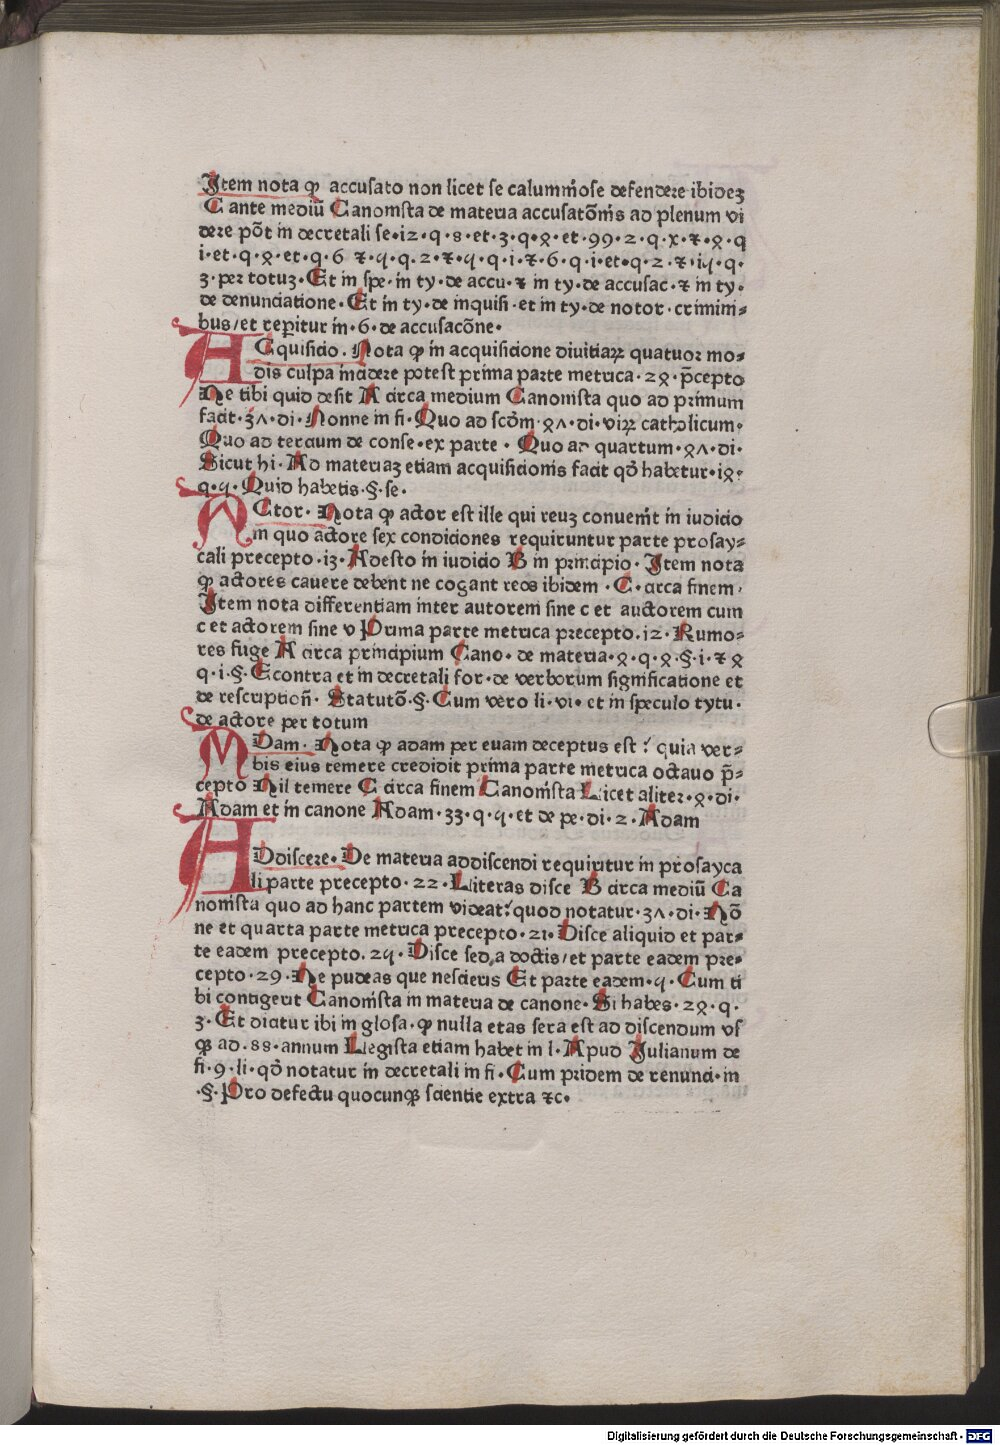 Item nota ꝙ accusato non licet se calumm̄ose defendere ibideʒ
C ante mediū Canomsta de materia accusatōm̄s ad plenum vi
dere pōt in decretali se•i2•q•8•et•3•q•ꝯ•et•99•2•q•x•⁊•ꝯ•q
i•et•q•ꝯ•et•q•6 ⁊•q•q•2•⁊•q•q•i•⁊•6•q•i•et•q•2•⁊•iq•q•
3•per totuʒ•Et in spe•in ty•de accu•⁊ in ty•de accusac•⁊ in ty•
de denunciatione•Et in ty•de inquisi•et in ty•de notor•crimini⸗
bus/et reꝑitur in•6•de accusacōne•
ACquisicio. Nota ꝙ in acquisicione diuitiaꝝ quatuor mo⸗
dis culpa incidere potest prima parte metrica•2ꝯ•p̄cepto
Ne tibi quid desit A circa medium Canomsta quo ad primum
facit•3ʌ•di•Nonne in fi•Quo ad scōm•ꝯʌ•di•viꝝ catholicum•
Quo ad tercium de conse•ex parte•Quo ad quartum•ꝯʌ•di•
Sicut hi•Ad materiaʒ etiam acquisicionis facit qō habetur•iꝯ•
q•q•Quid habetis•§•se•
ACtor•Nota ꝙ actor est ille qui reuʒ conuenit in iudicio
in quo actore sex condiciones requiruntur parte prosay⸗
cali precepto•i3•Adesto in iudicio B in principio•Item nota
ꝙ actores cauere debent ne cogant reos ibidem•C•circa finem•
Item nota differentiam inter autorem sine c et auctorem cum
c et actorem sine v Prima parte metrica precepto.i2•Rumo⸗
res fuge A circa principium Cano•de materia•ꝯ•q•ꝯ•§•i•⁊ ꝯ
q•i•§•Econtra et in decretali for•de verborum significatione et
de rescription̄•Statutō•§•Cum vero li•vi•et in speculo tytu•
de actore per totum
ADam•Nota ꝙ adam per euam deceptus est: quia ver⸗
bis eius temere credidit prima parte metrica octauo p̄⸗
cepto Nil temere C circa finem Canom̄sta Licet aliter•ꝯ•di•
Adam et in canone Adam•33•q•q•et de pe•di•2•Adam
ADdiscere•De materia addiscendi requiritur in prosayca
li parte precepto•22•Literas disce B circa mediū Ca
nom̄sta quo ad hanc partem videat:quod notatur•3ʌ•di•Nō
ne et quarta parte metrica precepto•21•Disce aliquid et par⸗
te eadem precepto.2q•Disce sed a doctis/et parte eadem pre⸗
cepto•29•Ne pudeas que nescieris Et parte eadem•q•Cum ti
bi contigerit Canom̄sta in materia de canone•Si habes•2ꝯ•q•
3•Et dicitur ibi in glosa•ꝙ nulla etas sera est ad discendum vs
ꝙ ad•88•annum Llegista etiam habet in l•Apud Julianum de
fi•9•li•qō notatur in decretali in fi•Cum pridem de renunci•in
•§•Pro defectu quocunꝙ sciencie extra ⁊c•
Digitalisierung gefördert durch die Deutsche Forschungsgemeinschaft • DFG